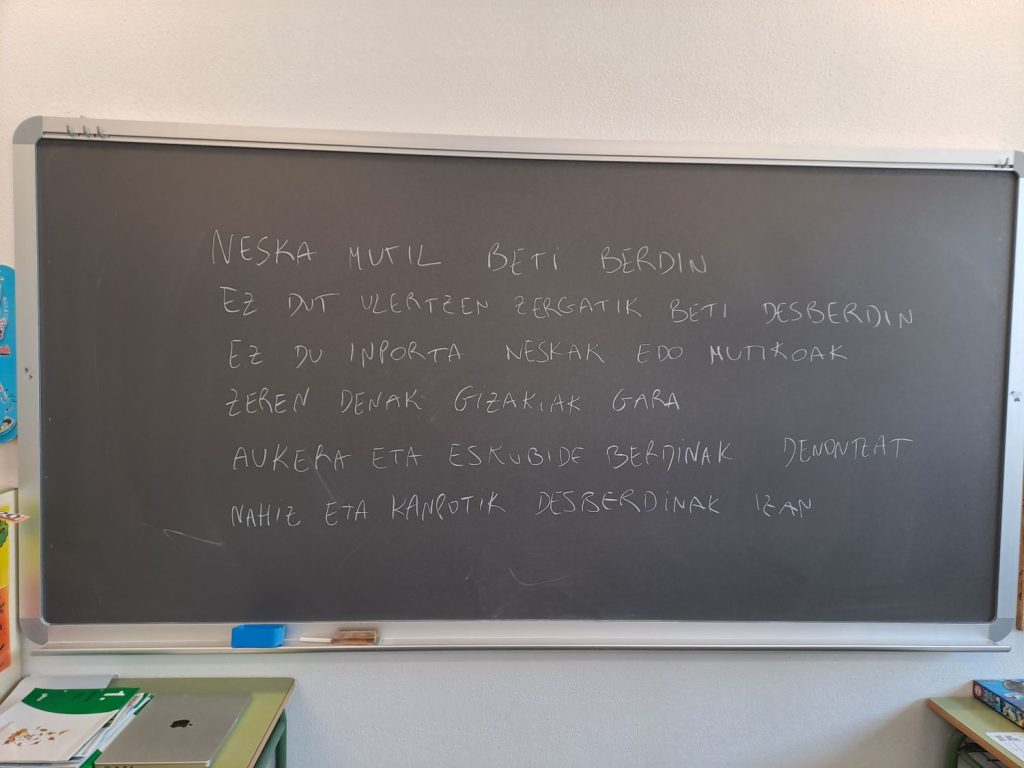 NESKA MUTIL BETI BERDIN
EZ DUT ULERTZEN ZERGATIK BETI DESBERDIN
EZ DU INPORTA NESKAK EDO MUTIKOAK
ZEREN DENAK GIZAKIAK GARA
AUKERA ETA ESKUBIDE BERDINAK DENONTZAT
NAHIZ ETA KANPOTIK DESBERDINAK IZAN
1.